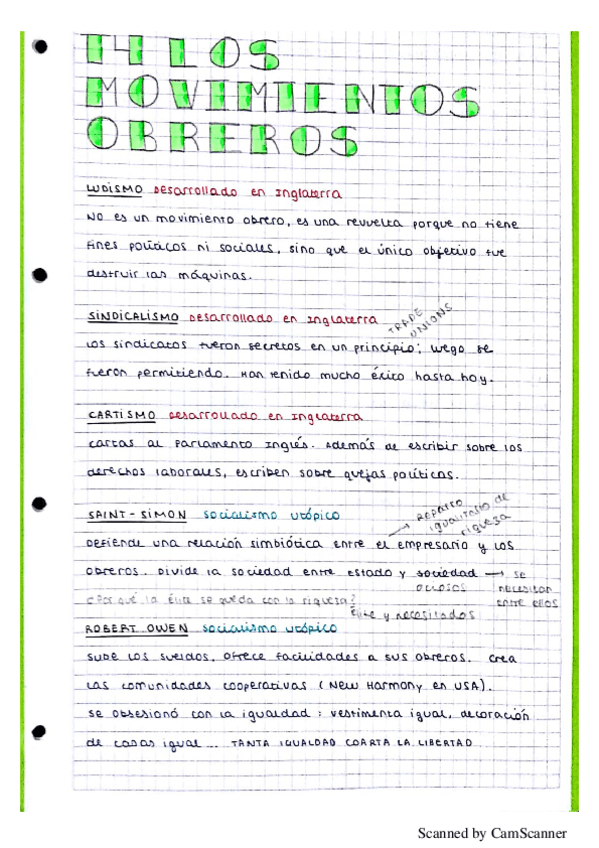 T4 LOS
MOVIMIENTOS
OBREROS
LUDISMO Desarrollado en Inglaterra
No es un movimiento obrero, es una revuelta porque no tiene
fines políticos ni sociales, sino que el único objetivo fue
destruir las máquinas.
SINDICALISMO Desarrollado en Inglaterra TRADE UNIONS
Los sindicatos fueron secretos en un principio; luego se
fueron permitiendo. Han tenido mucho éxito hasta hoy.
CARTISMO Desarrollado en Inglaterra
Cartas al Parlamento Inglés. Además de escribir sobre los
derechos laborales, escriben sobre quejas políticas.
SAINT-SIMON socialismo utópico → Reparto igualitario de riqueza
Defiende una relación simbiótica entre el empresario y los
obreros. Divide la sociedad entre estado y sociedad → SE NECESITAN ENTRE ELLOS
ociosos
¿Por qué la élite se queda con la riqueza?
Élite y necesitados
ROBERT OWEN socialismo utópico
Sube los sueldos, ofrece facilidades a sus obreros. Crea
las comunidades cooperativas (New Harmony en USA).
Se obsesionó con la igualdad: vestimenta igual, decoración
de casas igual... TANTA IGUALDAD COARTA LA LIBERTAD
Scanned by CamScanner